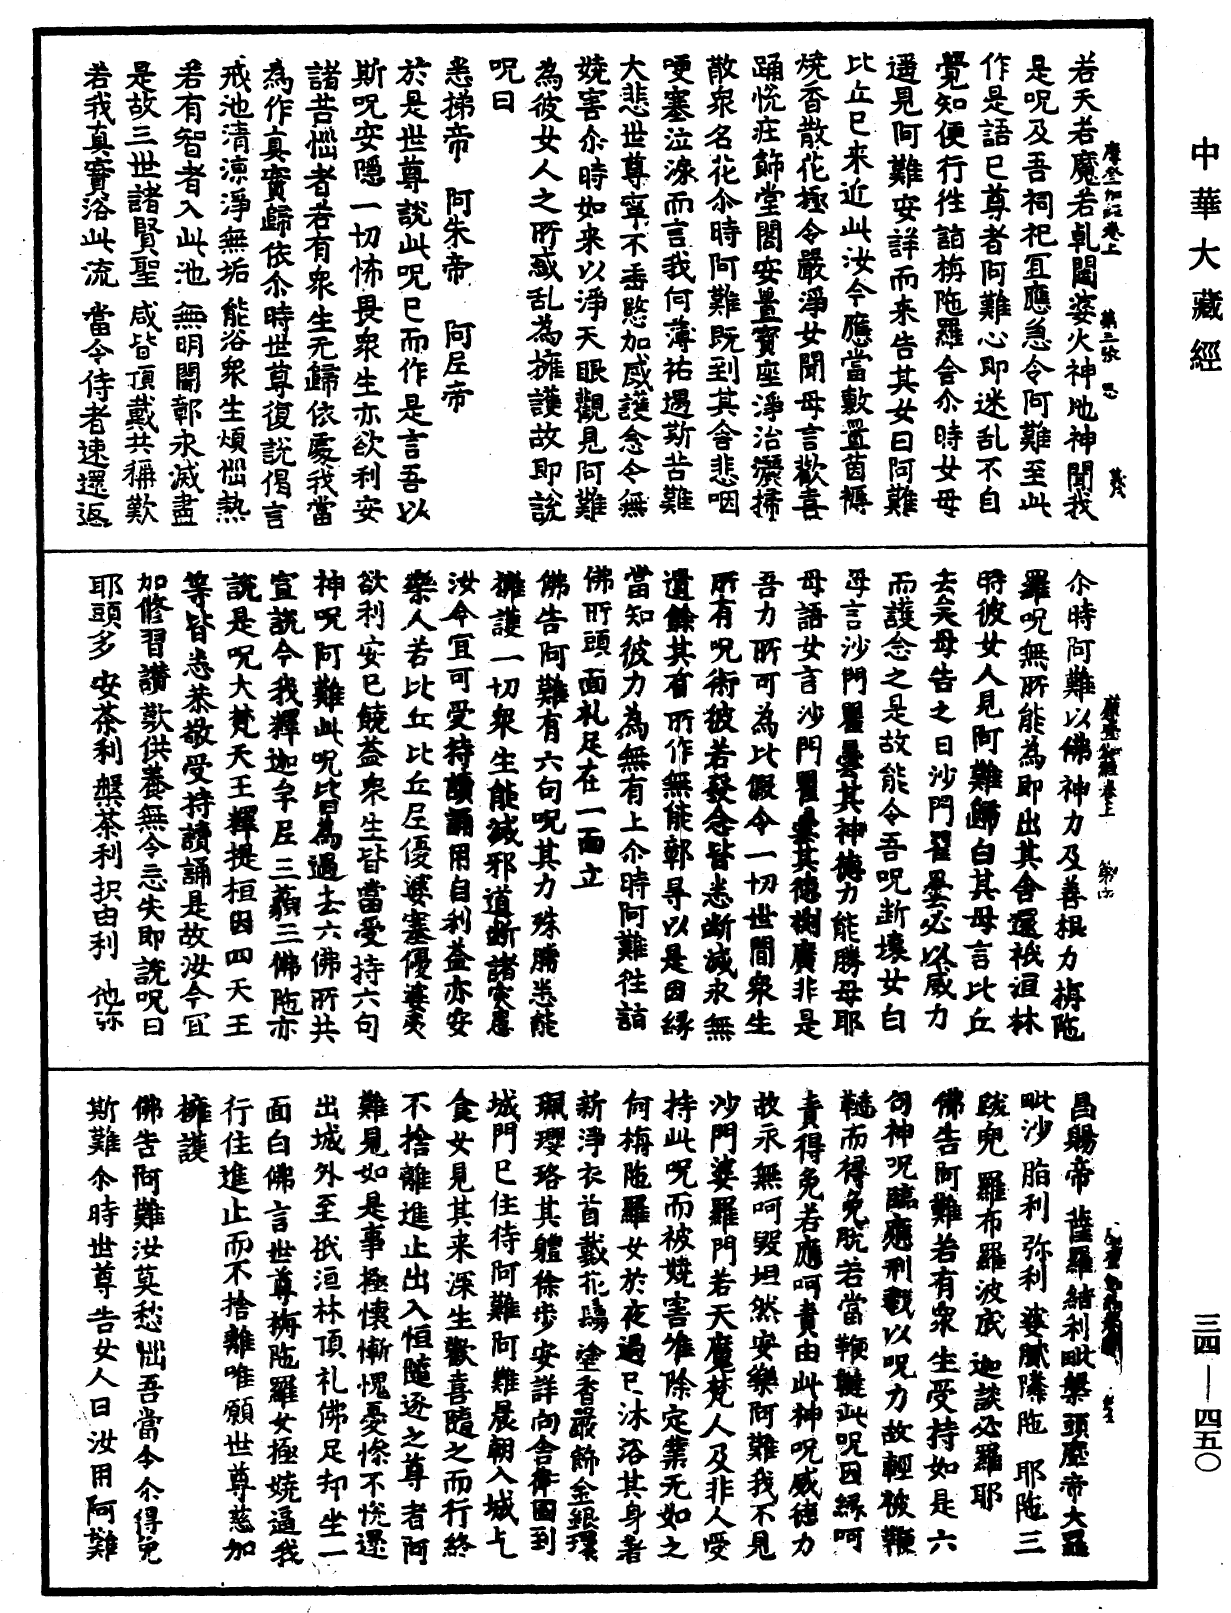 中華大藏經
若天若魔若乹闥婆火神地神聞我
是呪及吾祠祀宜應急令阿難至此
作是語已尊者阿難心即迷乱不自
覺知便行徃詣栴陁羅舍尒時女母
遥見阿難安詳而来告其女曰阿難
比丘已来近此汝今應當敷置茵褥
燒香散花極令嚴淨女聞母言歡喜
踊恱庄餝堂閤安置寳座淨治灑掃
散衆名花尒時阿難既到其舍悲咽
哽塞泣淚而言我何薄祐遇斯苦難
大悲世尊寧不垂愍加威護念令無
嬈害尒時如来以淨天眼觀見阿難
為彼女人之所惑乱為擁護故即說
呪曰
悉挮帝　阿朱帝　阿尼帝
於是世尊說此呪已而作是言吾以
斯呪安隱一切怖畏衆生亦欲利安
諸苦惱者若有衆生无歸依處我當
為作真實歸依尒時世尊復說偈言
戒池清涼淨無垢　能浴衆生煩惱熱
若有智者入此池　無明闇鄣永滅盡
是故三世諸賢聖　咸皆頂戴共稱歎
若我真實浴此流　當令侍者速還返
尒時阿難以佛神力及善根力栴陁
羅呪無所能為即出其舍還祇洹林
時彼女人見阿難歸白其母言比丘
去矣母告之曰沙門瞿曇必以威力
而護念之是故能令吾呪断壞女白
母言沙門瞿曇其神德力能勝母耶
母語女言沙門瞿曇其德淵廣非是
吾力所可為比假令一切世間衆生
所有呪術彼若發念皆悉断滅永無
遺餘其有所作無能鄣㝵以是因縁
當知彼力為無有上尒時阿難徃詣
佛所頭面礼足在一面立
佛告阿難有六句呪其力殊勝悉能
擁護一切衆生能滅邪道断諸灾患
汝今宜可受持讀誦用自利益亦安
樂人若比丘比丘尼優婆塞優婆夷
欲利安已饒益衆生皆當受持六句
神呪阿難此呪皆為過去六佛所共
宣說今我釋迦牟尼三藐三佛陁亦
說是呪大梵天王釋提桓因四天王
等皆悉恭敬受持讀誦是故汝今宜
加修習讃歎供養無令忘失即說呪曰
耶頭多　安茶利盤茶利　抧由利　他弥
曷賜帝　薩羅緒利毗槃頭　帝大羅
毗沙脂利　弥利　婆　膩隣陁　耶陁三
跋兜　羅布羅波底　迦談必羅耶
佛告阿難若有衆生受持如是六
句神呪臨應刑戮以呪力故輕被鞭
韃而得免脫若當鞭韃此呪因縁呵
責得免若應呵責由此神呪威德力
故永無呵毀坦然安樂阿難我不見
沙門婆羅門若天魔梵人及非人受
持此呪而被嬈害唯除定業无如之
何栴陁羅女於夜過已沐浴其身著
新淨衣首戴花鬘　塗香嚴餙金銀環
珮瓔珞其軆徐步安詳向舍衛國到
城門已住待阿難阿難晨朝入城乞
食女見其来深生歡喜隨之而行終
不捨離進止出入恒隨逐之尊者阿
難見如是事極懷慚愧憂慘不恱還
出城外至祇洹林頂礼佛足却坐一
面白佛言世尊栴陁羅女極嬈逼我
行住進止而不捨離唯願世尊慈加
擁護
佛告阿難汝莫愁惱吾當令尒得免
斯難尒時世尊告女人曰汝用阿難
三四—四五〇